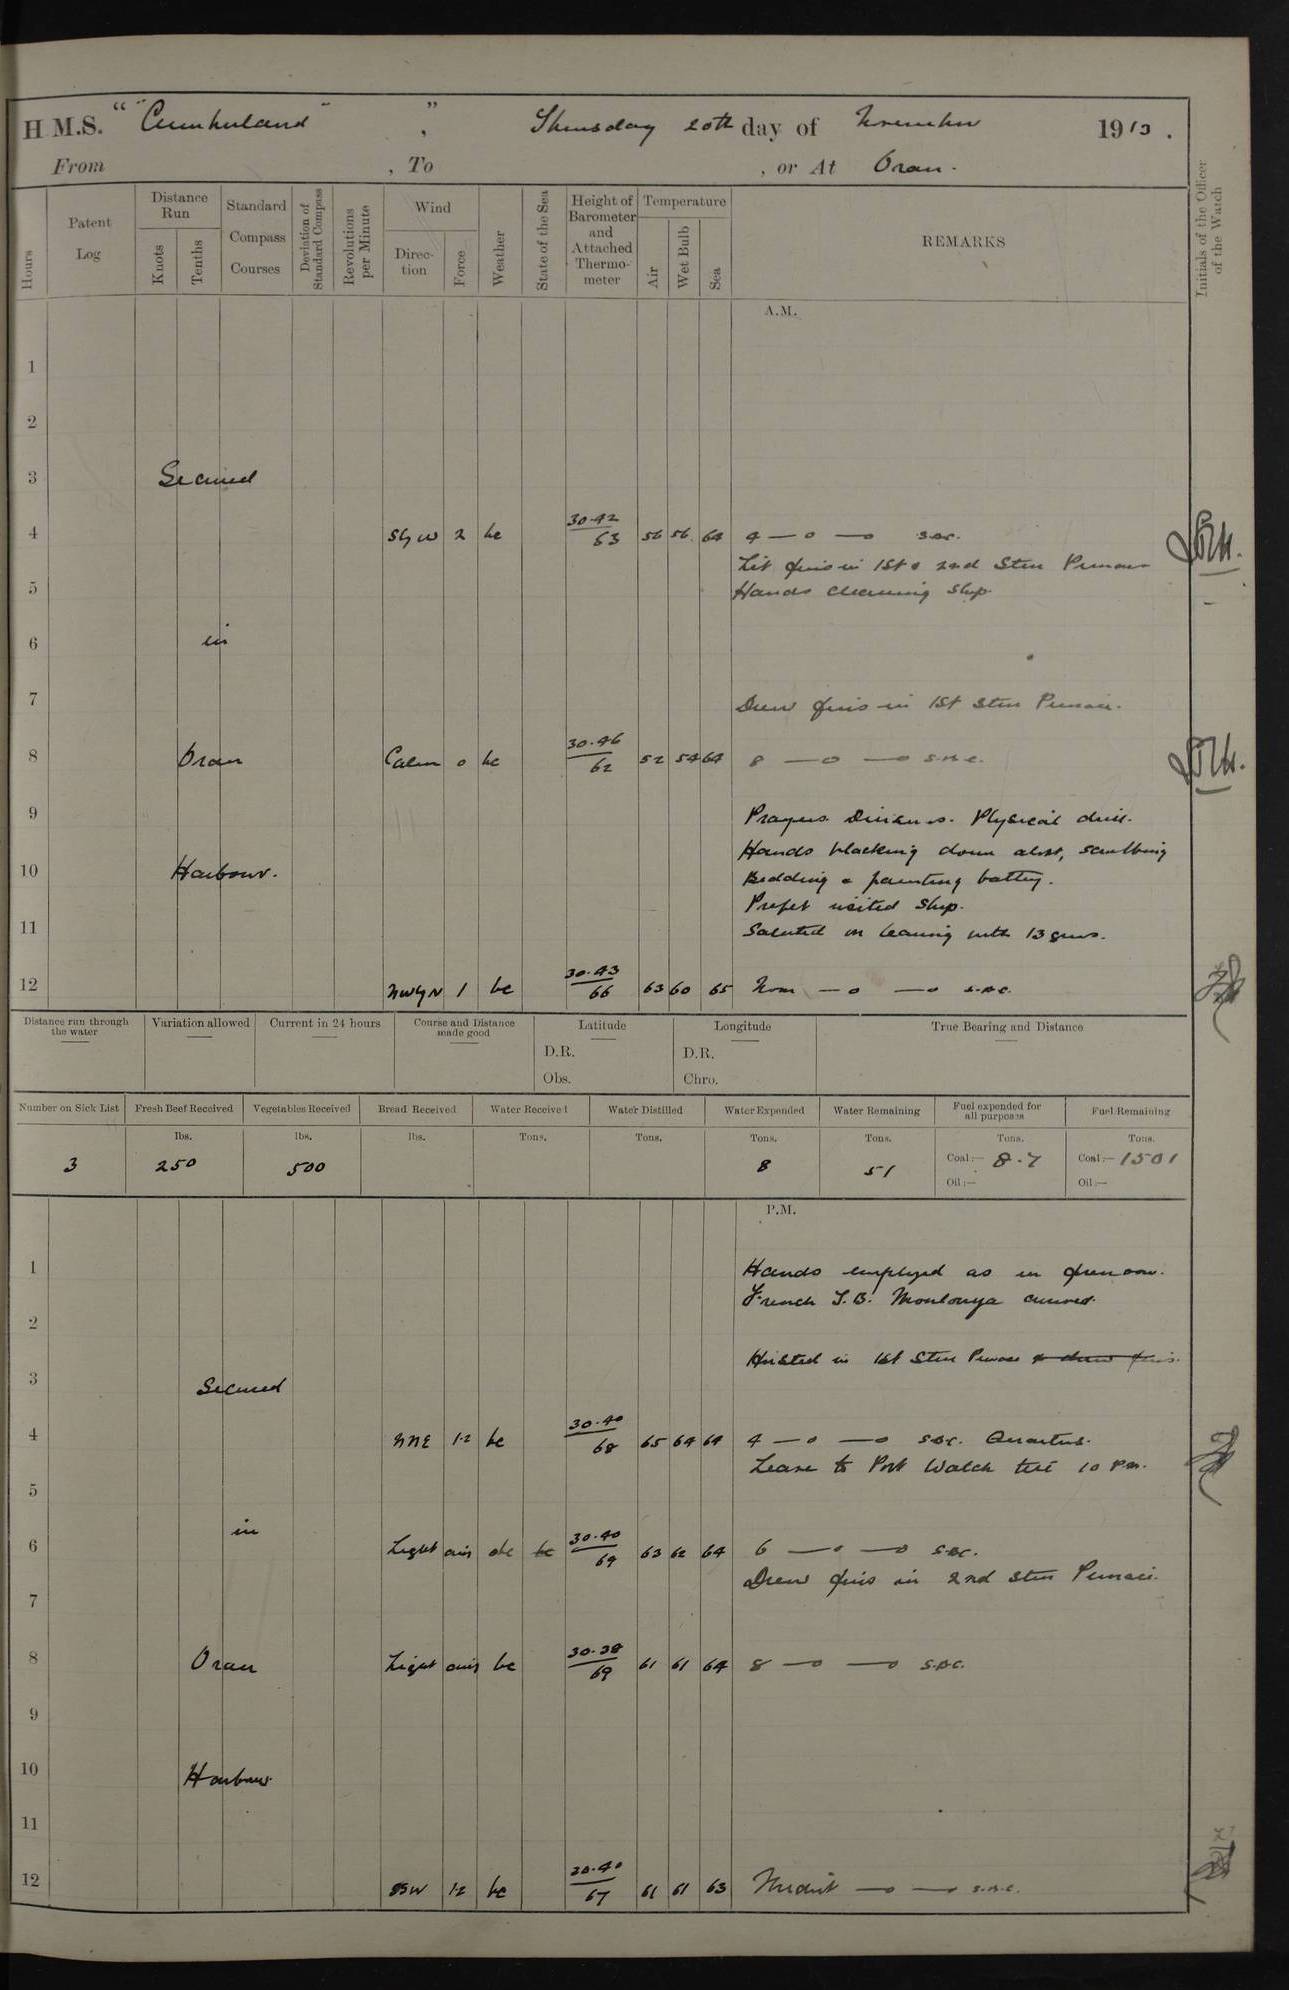 H.M.S. "Cumberland", Thursday 20th day of November 1913.
From , To , or At Oran.
Hours
Patent Log
Distance Run
Knots
Tenths
Standard Compass Courses
Deviation of Standard Compass
Revolutions per Minute
Wind
Direction
Force
Weather
State of the Sea
Height of Barometer and Attached Thermometer
Temperature
Air
Wet Bulb
Sea
REMARKS
Initials of the Officer of the Watch
A.M.
1
2
3 Secured
4 SbyW 2 bc 30.42 63 56 56 64 4 —o —o s.b.c.
Lit fires in 1st & 2nd Stm Pinnace
5 Hands cleaning ship
6 in
7 Drew fires in 1st Stm Pinnace.
8 Oran Calm 0 bc 30.46 62 52 54 64 8 —o —o s.b.c.
9 Prayers. Divisions. Physical drill.
Hands blacking down aloft, scrubbing
10 Harbour. Bedding & painting battery.
Prefet visited ship.
11 Saluted on leaving with 13 guns.
12 NWbyN 1 bc 30.43 66 63 60 65 Noon —o —o s.b.c.
Distance run through the water
Variation allowed
Current in 24 hours
Course and Distance made good
Latitude
D.R.
Obs.
Longitude
D.R.
Chro.
True Bearing and Distance
Number on Sick List Fresh Beef Received Vegetables Received Bread Received Water Received Water Distilled Water Expended Water Remaining Fuel expended for all purposes Fuel Remaining
lbs. lbs. lbs. Tons. Tons. Tons. Tons. Tons. Tons.
3 250 500 8 51 Coal:— 8.7 Coal:— 1501
Oil:— Oil:—
P.M.
1 Hands employed as in forenoon.
French T.B. Moulouya arrived.
2
Hoisted in 1st Stm Pinnace & drew fires.
3 Secured
4 NNE 1-2 bc 30.40 68 65 64 64 4 —o —o s.b.c. Quarters.
Leave to Port Watch till 10 P.m.
5
in
6 Light airs bc bc 30.40 69 63 62 64 6 —o —o s.b.c.
Drew fires in 2nd Stm Pinnace.
7
8 Oran Light airs bc 30.38 69 61 61 64 8 —o —o s.b.c.
9
10 Harbour.
11
12 SSW 1-2 bc 30.40 67 61 61 63 Midnt —o —o s.b.c.